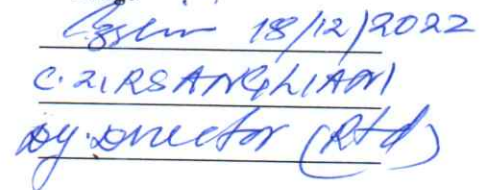 18/12/2022
C. ZIRSANGLIANI
Dy. Director (Rtd)